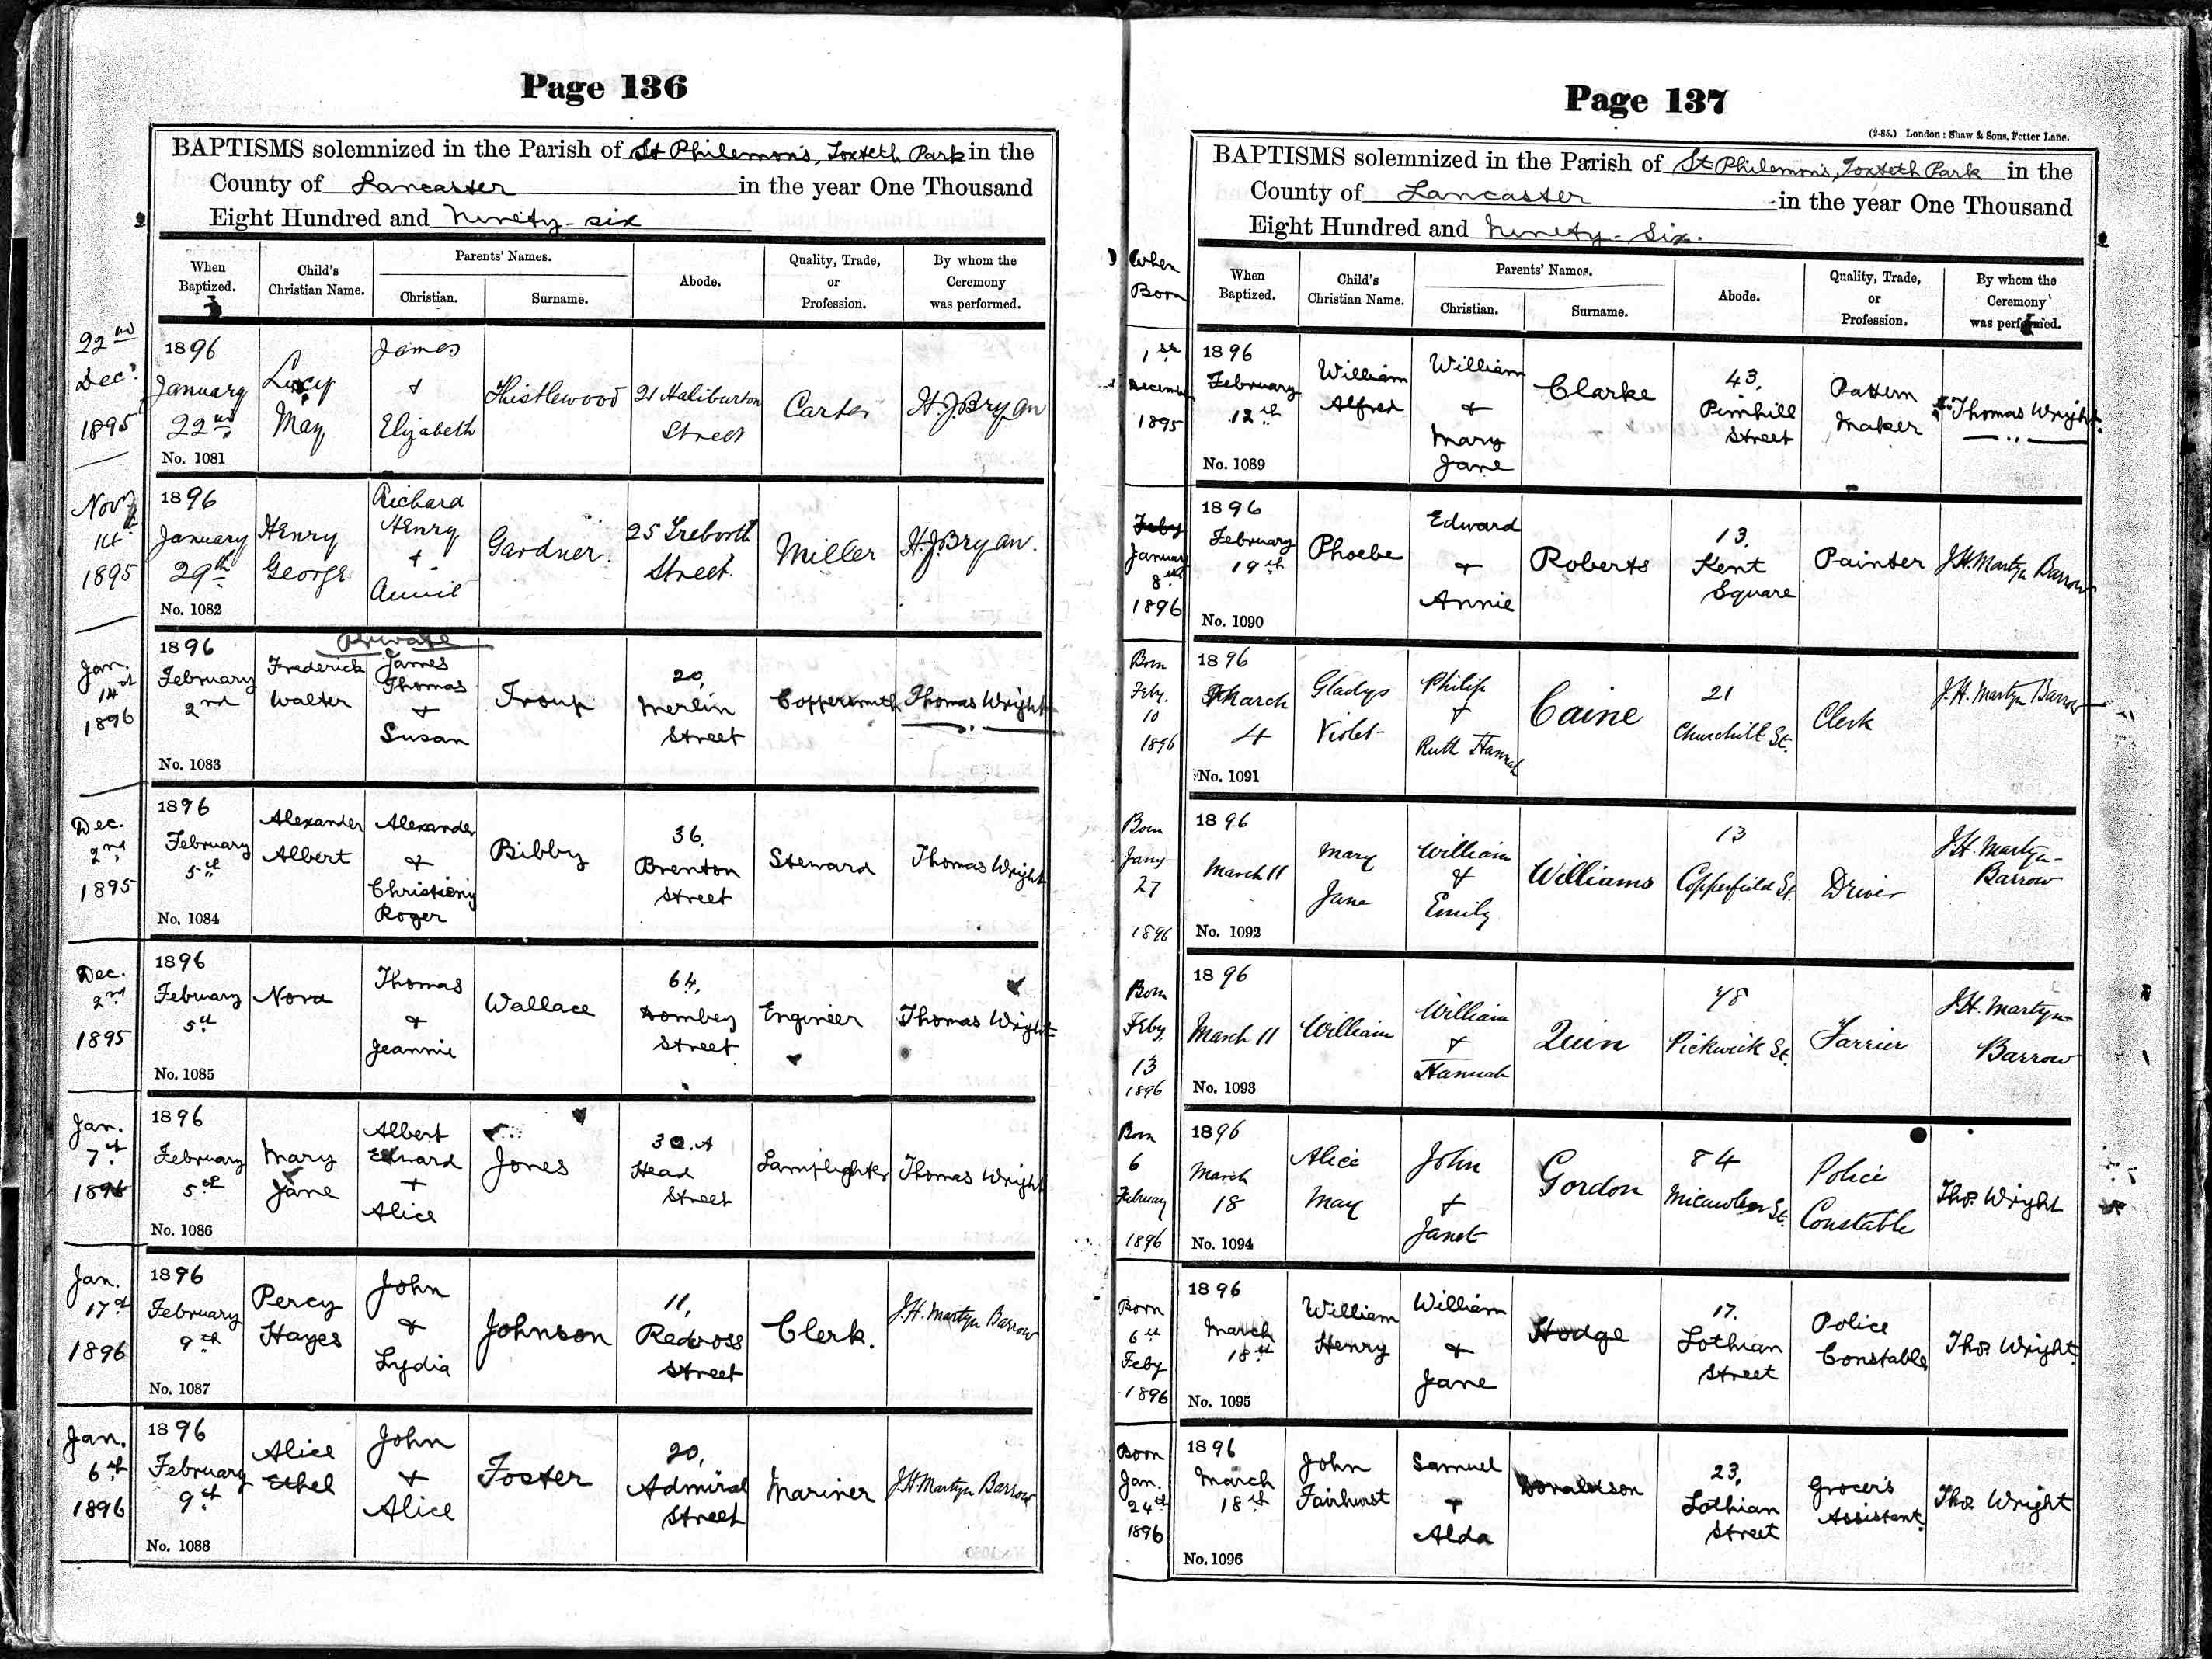 Page 136
BAPTISMS solemnized in the Parish of St Philemon's, Toxteth Park in the
County of Lancaster in the year One Thousand
Eight Hundred and Ninety-six
When Baptized.
Child's Christian Name.
Parents' Names.
Christian.
Surname.
Abode.
Quality, Trade, or Profession.
By whom the Ceremony was performed.
22nd
Decr
1895
1896
January
22nd
No. 1081
Lucy
May
James
&
Elizabeth
Thistlewood
21 Haliburton
Street
Carter
H.J. Bryan
Novr
14
1895
1896
January
29th
No. 1082
Henry
George
Richard
Henry
&
Annie
Gardner.
25 Treborth
Street.
Miller
H.J. Bryan.
Jan.
14th
1896
1896
February
2nd
No. 1083
Private
Frederick
Walter
James
Thomas
&
Susan
Troup
20,
Merlin
Street
Coppersmith
Thomas Wright
Dec.
2nd
1895
1896
February
5th
No. 1084
Alexander
Albert
Alexander
&
Roger
Bibby
36,
Brenton
Street
Steward
Thomas Wright
Dec.
2nd
1895
1896
February
5th
No. 1085
Nora
Thomas
&
Jeannie
Wallace
64,
Dombey
Street
Engineer
Thomas Wright
Jan.
7th
1896
1896
February
5th
No. 1086
Mary
Jane
Albert
Edward
&
Alice
Jones
30.A
Head
Street
Lamplighter
Thomas Wright
Jan.
17th
1896
1896
February
9th
No. 1087
Percy
Hayes
John
&
Lydia
Johnson
11,
Redcross
Street
Clerk.
J.H. Martyn Barrow
Jan.
6th
1896
1896
February
9th
No. 1088
Alice
Ethel
John
&
Alice
Foster
20,
Admiral
Street
Mariner
J.H. Martyn Barrow
Page 137
(2-85.) London: Shaw & Sons, Fetter Lane.
BAPTISMS solemnized in the Parish of St Philemon's, Toxteth Park in the
County of Lancaster in the year One Thousand
Eight Hundred and Ninety-Six.
When
Born
When Baptized.
Child's Christian Name.
Parents' Names.
Christian.
Surname.
Abode.
Quality, Trade, or Profession.
By whom the Ceremony was performed.
1st
December
1895
1896
February
12th
No. 1089
William
Alfred
William
&
Mary
Jane
Clarke
43,
Pirnhill
Street
Pattern
Maker
Thomas Wright.
Feby
January
8th
1896
1896
February
19th
No. 1090
Phoebe
Edward
&
Annie
Roberts
13,
Kent
Square
Painter
J.H. Martyn Barrow
Born
Feby.
10
1896
1896
March
4
No. 1091
Gladys
Violet
Philip
&
Ruth Hannah
Caine
21
Churchill St.
Clerk
J.H. Martyn Barrow
Born
Jany
27
1896
1896
March 11
No. 1092
Mary
Jane
William
&
Emily
Williams
13
Copperfield St.
Driver
J.H. Martyn-
Barrow
Born
Feby.
13
1896
1896
March 11
No. 1093
William
William
&
Hannah
Quin
48
Pickwick St.
Farrier
J.H. Martyn
Barrow
Born
6
February
1896
1896
March
18
No. 1094
Alice
May
John
&
Janet
Gordon
84
Micawber St.
Police
Constable
Thos. Wright
Born
6th
Feby
1896
1896
March
18th
No. 1095
William
Henry
William
&
Jane
Hodge
17.
Lothian
Street
Police
Constable
Thos. Wright.
Born
Jan.
24th
1896
1896
March
18th
No. 1096
John
Fairhurst
Samuel
&
Alda
Donaldson
23,
Lothian
Street
Grocer's
Assistant.
Thos. Wright